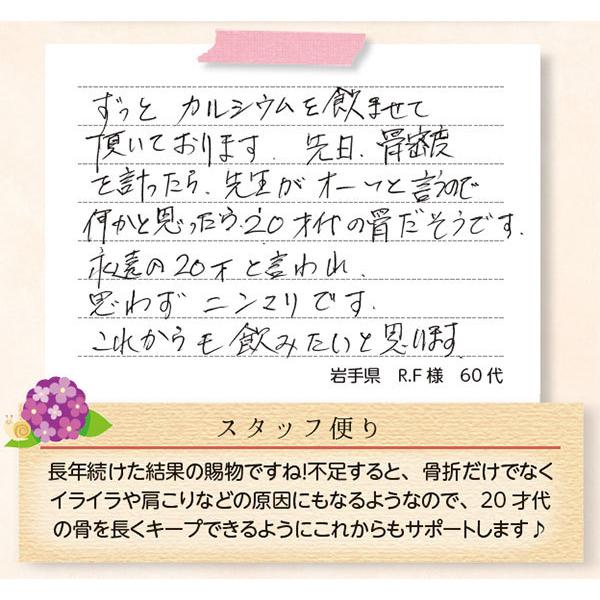 ずっと カルシウムを飲ませて
頂いております。 先日、骨密度
を計ったら、先生がオーッと言うので
何かと思ったら、20才代の骨だそうです。
永遠の20才と言われ、
思わずニンマリです。
これからも飲みたいと思います
岩手県 R.F様 60代
スタッフ便り
長年続けた結果の賜物ですね!不足すると、骨折だけでなく
イライラや肩こりなどの原因にもなるようなので、20才代
の骨を長くキープできるようにこれからもサポートします♪